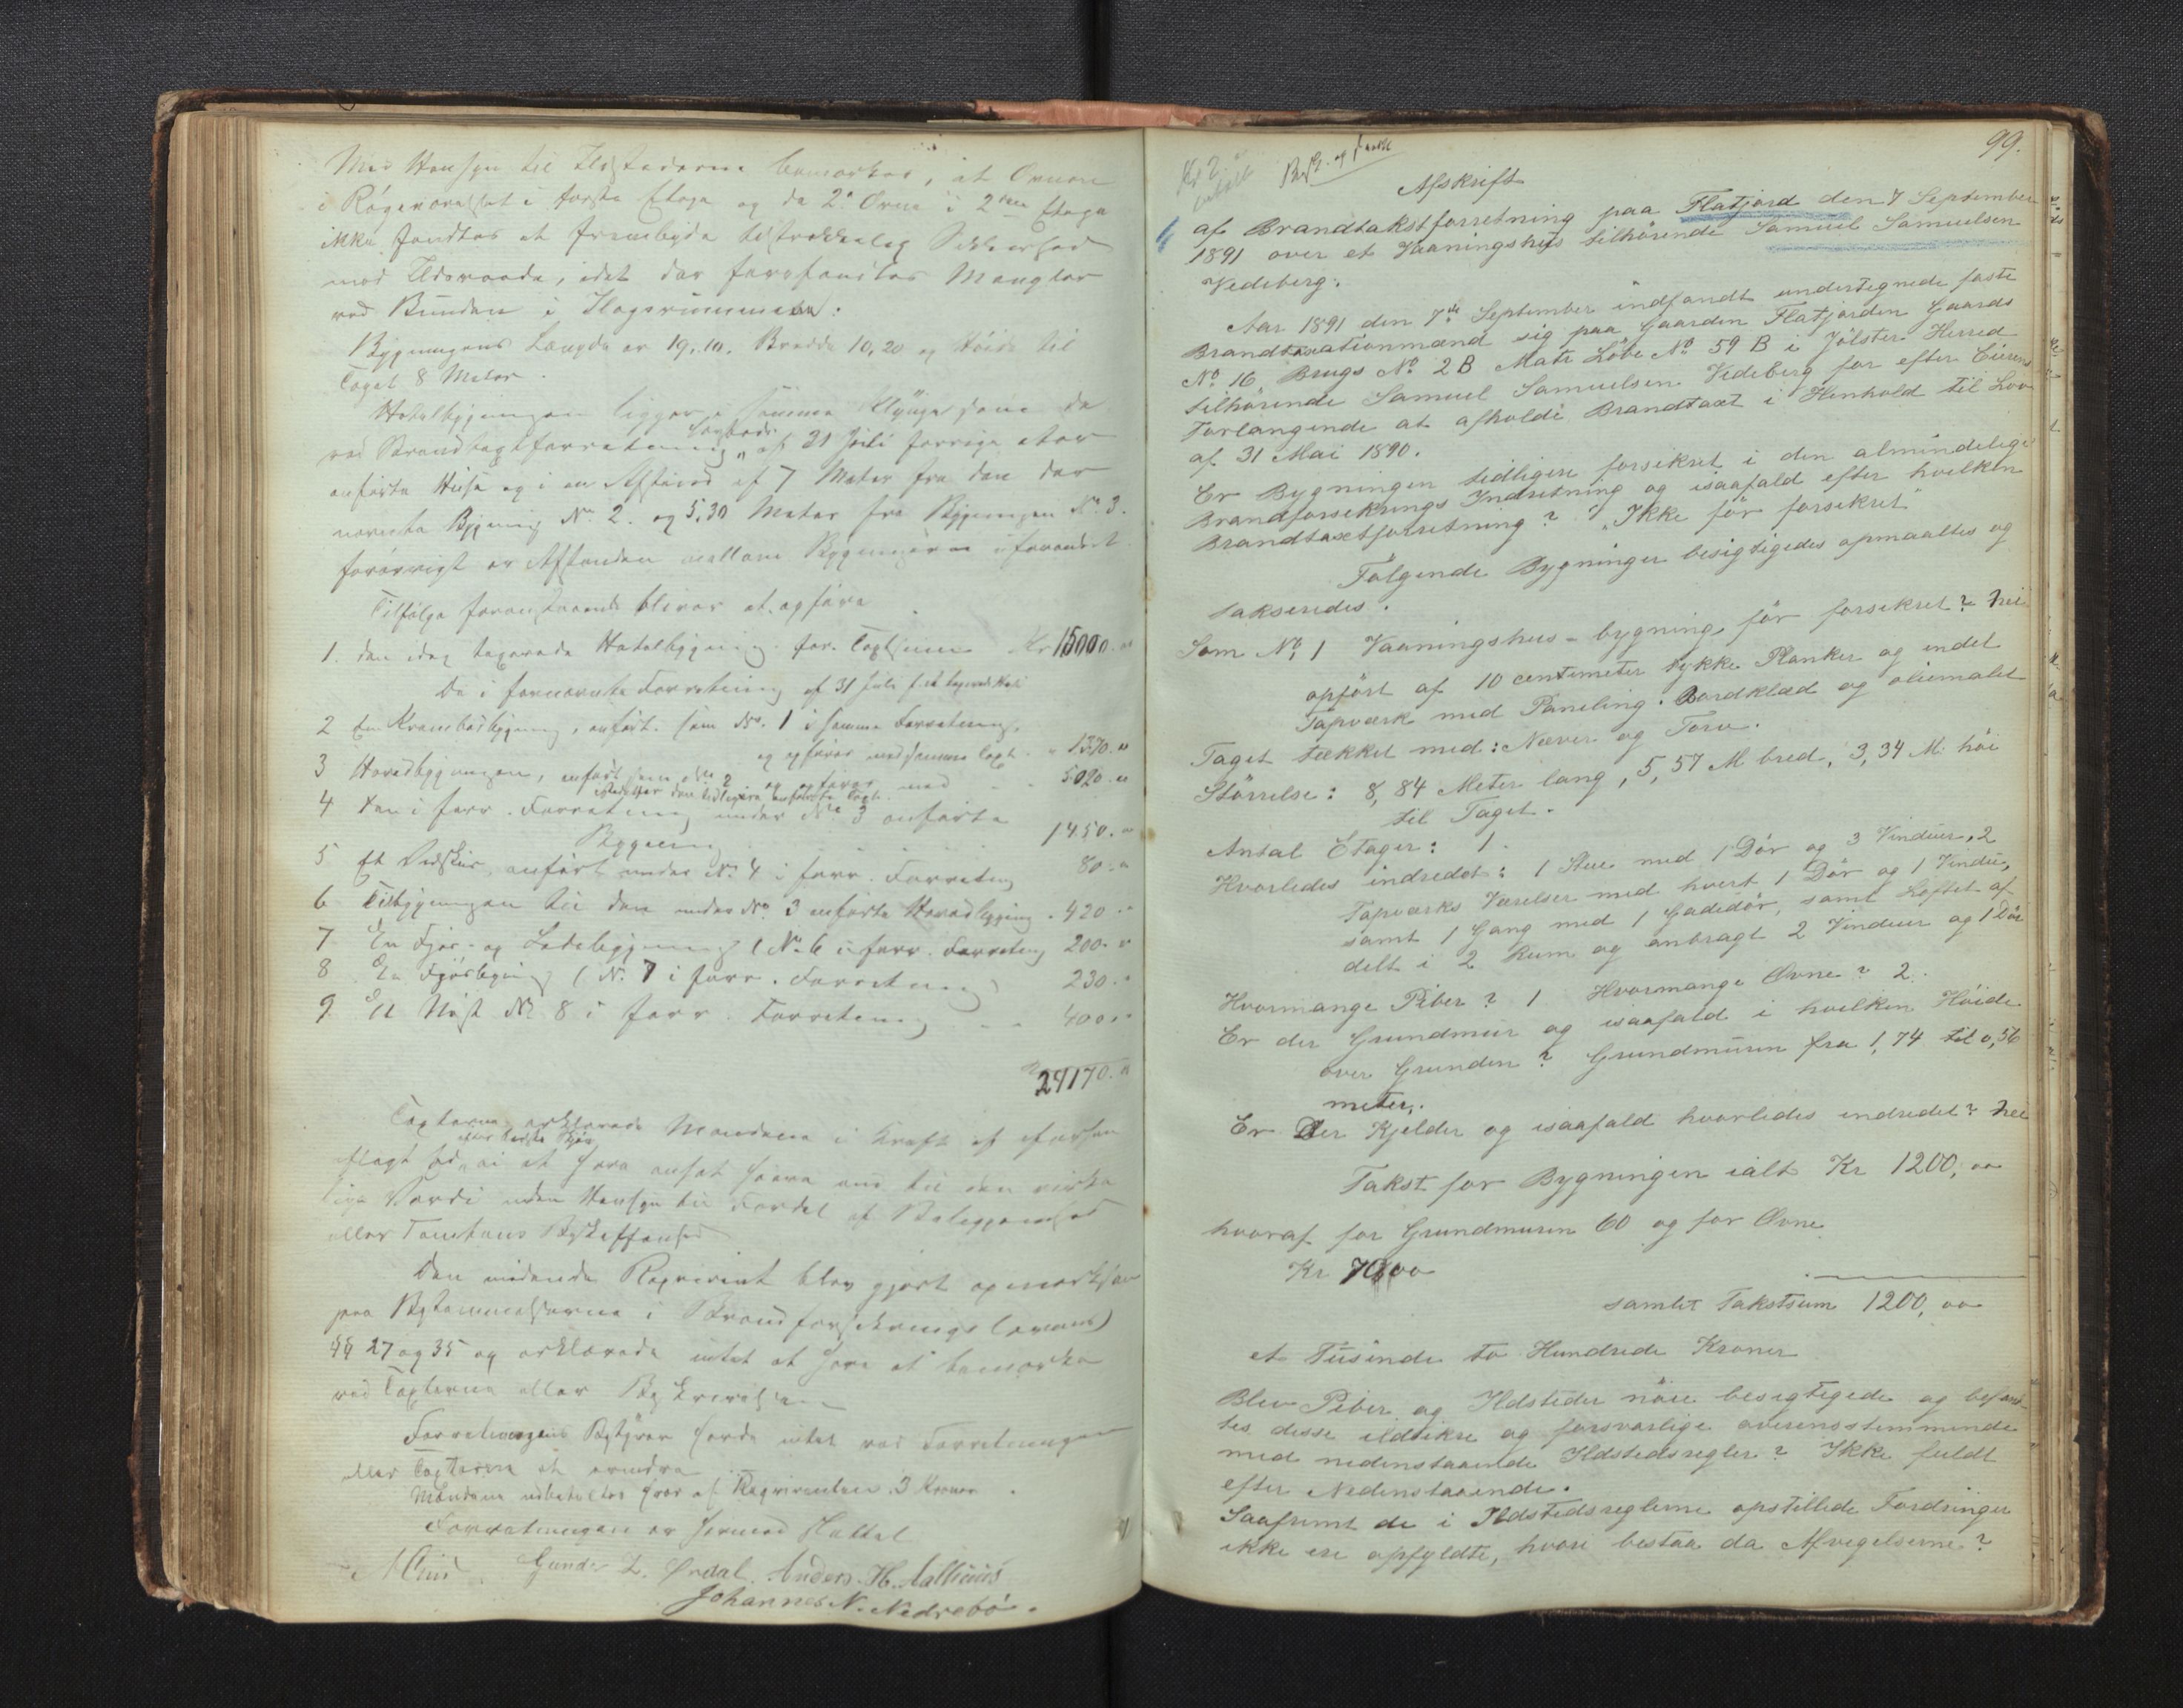 Med Hensyn til Ildstederne bemærkes, at Ovnen
i Røgeværelset i første Etage og de 2de Ovne i 2den Etage
ikke fandtes at frembyde tilstrækkelig Sikkerhed
mod Ildsvaade, idet der forefandtes Mangler
ved Bunden i
Bygningens Længde er 19,10. Bredde 10,20 og Høide til
Taget 8 Meter.
Hotelbygningen ligger i samme Klynge som de
ved Brandtaxtforretning af 31 Juli forrige Aar
anførte Huse og i en Afstand af 7 Meter fra den der
nævnte Bygning No. 2. og 5,30 Meter fra Bygningen No. 3.
forøvrigt er Afstanden mellem Bygningerne uforandret
Tilfølge foranstaaende bliver at opføre
1. den idag taxerede Hotelbygning for Taxtsum Kr 15000."
De i fornævnte Forretning af 31 Juli f.A.
2 En Krambodbygning, anført som No. 1 i samme Forretning,
og opføres med samme Taxt " 1370."
3 Hovedbygningen, anført som No 2 og opføres med 5020."
efter den tidligere anførte Taxt
4 den i forr. Forretning under No 3 anførte
Bygning 1450."
5 Et Vedskur, anført under No. 4 i forr. Forretning 80."
6 Tilbygningen til den under No. 3 anførte Hovedbygning " 420."
7 En Fjøs- og Ladebygning (No. 6 i forr. Forretning 200."
8 En Fjøsbygning (No. 7 i forr. Forretning) 230."
9 Et Nøst No 8 i forr. Forretning 400."
24170."
Taxterne erklærede Mændene i Kraft af aflagt
Ed, efter bedste Skjøn ei at have ansat høiere end til den virke-
lige Værdi uden Hensyn til Fordel af Beliggenhed
eller Tomtens Beskaffenhed
Den mødende Rekvirent blev gjort opmærksom
paa Bestemmelserne i Brandforsikringslovens
§§ 27 og 35 og erklærede intet at have at bemærke
ved Taxterne eller Beskrivelsen
Forretningens Bestyrer havde intet ved Forretningen
eller Taxterne at erindre
Mændene udbetaltes hver af Rekvirenten 3 Kroner.
Forretningen er hermed sluttet
Gunder L. Årdal. Anders. H.
Johannes N. Nedrebö.
99.
Kr 2
Afskrift
af Brandtakstforretning paa Flatjord den 7 September
1891 over et Vaaningshus tilhörende Samuel Samuelsen
Vedeberg.
Aar 1891 den 7de September indfandt undertegnede faste
Brandtaxationmænd sig paa Gaarden Flatjorden Gaards
No. 16, Brugs No. 2 B Matr Löbe No. 59 B i Jölster Herred
tilhörende Samuel Samuelsen Vedeberg for efter Eierens
Forlangende at afholde Brandtaxt i Henhold til Lov
af 31 Mai 1890.
Er Bygningen tidligere forsikret i den almindelige
Brandforsekrings Indretning og isaafald efter hvilken
Brandtaxtforretning? "Ikke för forsikret"
Fölgende Bygninger besigtigedes opmaaltes og
takseredes.
Som No. 1 Vaaningshus-bygning för forsekret? nei
opfört af 10 centimeter tykke Planker og endel
Tapværk med Paneling. Bordklæd og oliemalet
Taget tækket med: Næver og Torv.
Störrelse: 8,84 Meter lang, 5,57 M bred, 3,34 M. höi
til Taget.
Antal Etager: 1.
Hvorledes indredet: 1 Stue med 1 Dör og 3 Vinduer, 2
Tapværks Værelser med hvert 1 Dör og 1 Vindu,
samt 1 Gang med 1 Gadedör, samt Loftet af
delt i 2 Rum og anbragt 2 Vinduer og 1 Dör
Hvormange Piber? 1 Hvormange Ovne? 2.
Er der Grundmur og isaafald i hvilken Höide
over Grunden? Grundmuren fra 1,74 til 0,56
meter.
Er Der Kjelder og isaafald hvorledes indredet? nei
Takst for Bygningen ialt Kr 1200,00
hvoraf for Grundmuren 60 og for Ovne
Kr 70,00
samlet Takstsum 1200,00
et Tusinde to Hundrede Kroner
Blev Piber og Ildsteder nöie besigtigede og befand-
tes disse ildsikre og forsvarlige overensstemmende
med nedenstaaende Ildstedsregler? Ikke fuldt
efter Nedenstaaende.
Saafremt de i Ildstedsreglerne opstillede Fordringer
ikke ere opfyldte, hvori bestaa da Afvegelserne?